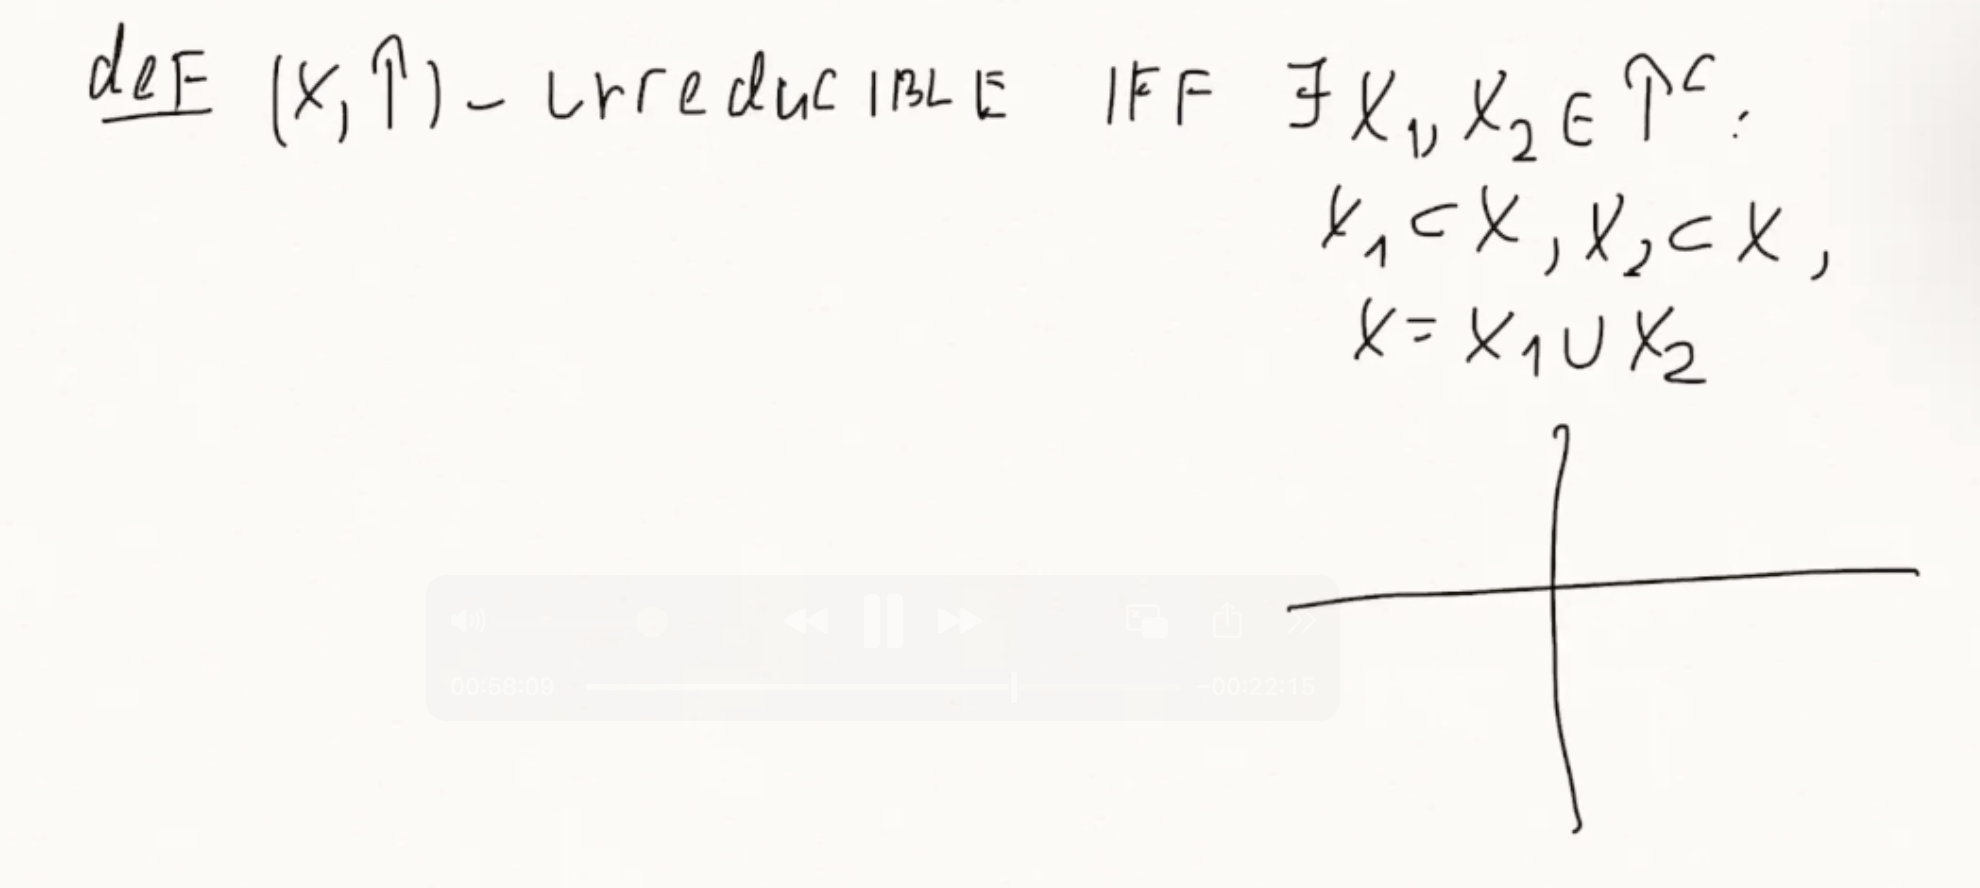 def (X,↑) - irreducIBLE IFF ∃ X₁, X₂ ∈ ↑ᶜ:
X₁ ⊂ X, X₂ ⊂ X,
X = X₁ ∪ X₂
00:58:09 -00:22:15